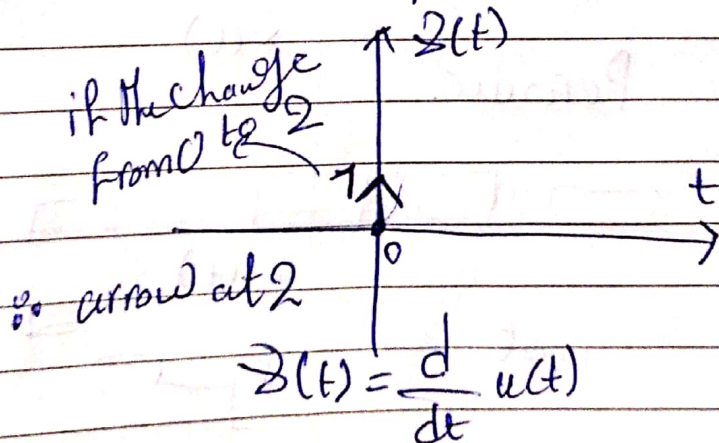 δ(t)
if the change
from 0 to 2
1
t
0
∴ arrow at 2
δ(t) = d/dt u(t)